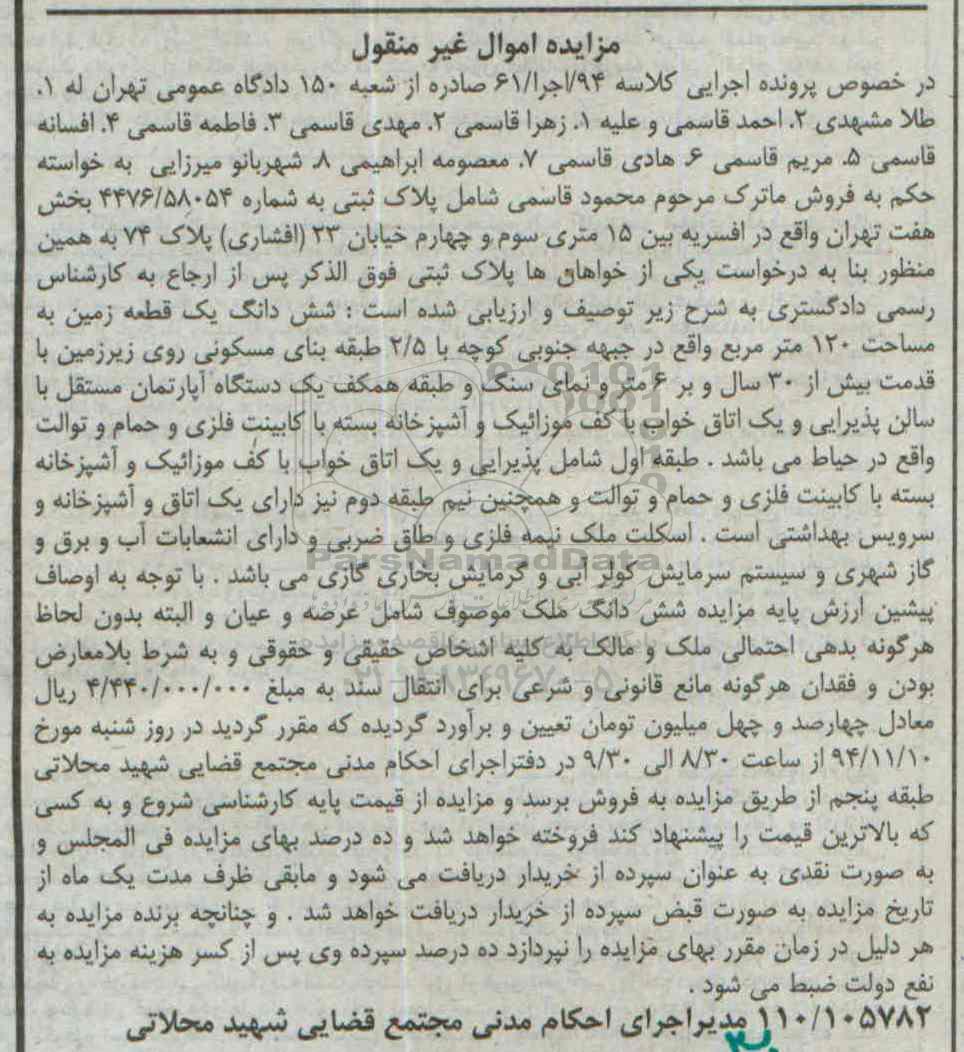 مزایده اموال غیر منقول
در خصوص پرونده اجرایی کلاسه ۹۴/اجرا/۶۱ صادره از شعبه ۱۵۰ دادگاه عمومی تهران له ۱.
طلا مشهدی ۲. احمد قاسمی و علیه ۱. زهرا قاسمی ۲. مهدی قاسمی ۳. فاطمه قاسمی ۴. افسانه
قاسمی ۵. مریم قاسمی ۶. هادی قاسمی ۷. معصومه ابراهیمی ۸. شهربانو میرزایی به خواسته
حکم به فروش ماترک مرحوم محمود قاسمی شامل پلاک ثبتی به شماره ۴۴۷۶/۵۸۰۵۴ بخش
هفت تهران واقع در افسریه بین ۱۵ متری سوم و چهارم خیابان ۲۳ (افشاری) پلاک ۷۴ به همین
منظور بنا به درخواست یکی از خواهان ها پلاک ثبتی فوق الذکر پس از ارجاع به کارشناس
رسمی دادگستری به شرح زیر توصیف و ارزیابی شده است : شش دانگ یک قطعه زمین به
مساحت ۱۲۰ متر مربع واقع در جبهه جنوبی کوچه با ۲/۵ طبقه بنای مسکونی روی زیرزمین با
قدمت بیش از ۳۰ سال و بر ۶ متر و نمای سنگ و طبقه همکف یک دستگاه آپارتمان مستقل با
سالن پذیرایی و یک اتاق خواب با کف موزائیک و آشپزخانه بسته با کابینت فلزی و حمام و توالت
واقع در حیاط می باشد . طبقه اول شامل پذیرایی و یک اتاق خواب با کف موزائیک و آشپزخانه
بسته با کابینت فلزی و حمام و توالت و همچنین نیم طبقه دوم نیز دارای یک اتاق و آشپزخانه و
سرویس بهداشتی است . اسکلت ملک نیمه فلزی و طاق ضربی و دارای انشعابات آب و برق و
گاز شهری و سیستم سرمایش کولر آبی و گرمایش بخاری گازی می باشد . با توجه به اوصاف
پیشین ارزش پایه مزایده شش دانگ ملک موصوف شامل عرصه و عیان و البته بدون لحاظ
هرگونه بدهی احتمالی ملک و مالک به کلیه اشخاص حقیقی و حقوقی و به شرط بلامعارض
بودن و فقدان هرگونه مانع قانونی و شرعی برای انتقال سند به مبلغ ۴/۴۴۰/۰۰۰/۰۰۰ ریال
معادل چهارصد و چهل میلیون تومان تعیین و برآورد گردیده که مقرر گردید در روز شنبه مورخ
۹۴/۱۱/۱۰ از ساعت ۸/۳۰ الی ۹/۳۰ در دفتراجرای احکام مدنی مجتمع قضایی شهید محلاتی
طبقه پنجم از طریق مزایده به فروش برسد و مزایده از قیمت پایه کارشناسی شروع و به کسی
که بالاترین قیمت را پیشنهاد کند فروخته خواهد شد و ده درصد بهای مزایده فی المجلس و
به صورت نقدی به عنوان سپرده از خریدار دریافت می شود و مابقی ظرف مدت یک ماه از
تاریخ مزایده به صورت قبض سپرده از خریدار دریافت خواهد شد . و چنانچه برنده مزایده به
هر دلیل در زمان مقرر بهای مزایده را نپردازد ده درصد سپرده وی پس از کسر هزینه مزایده به
نفع دولت ضبط می شود .
۱۱۰/۱۰۵۷۸۲ مدیراجرای احکام مدنی مجتمع قضایی شهید محلاتی
ParsNamadData